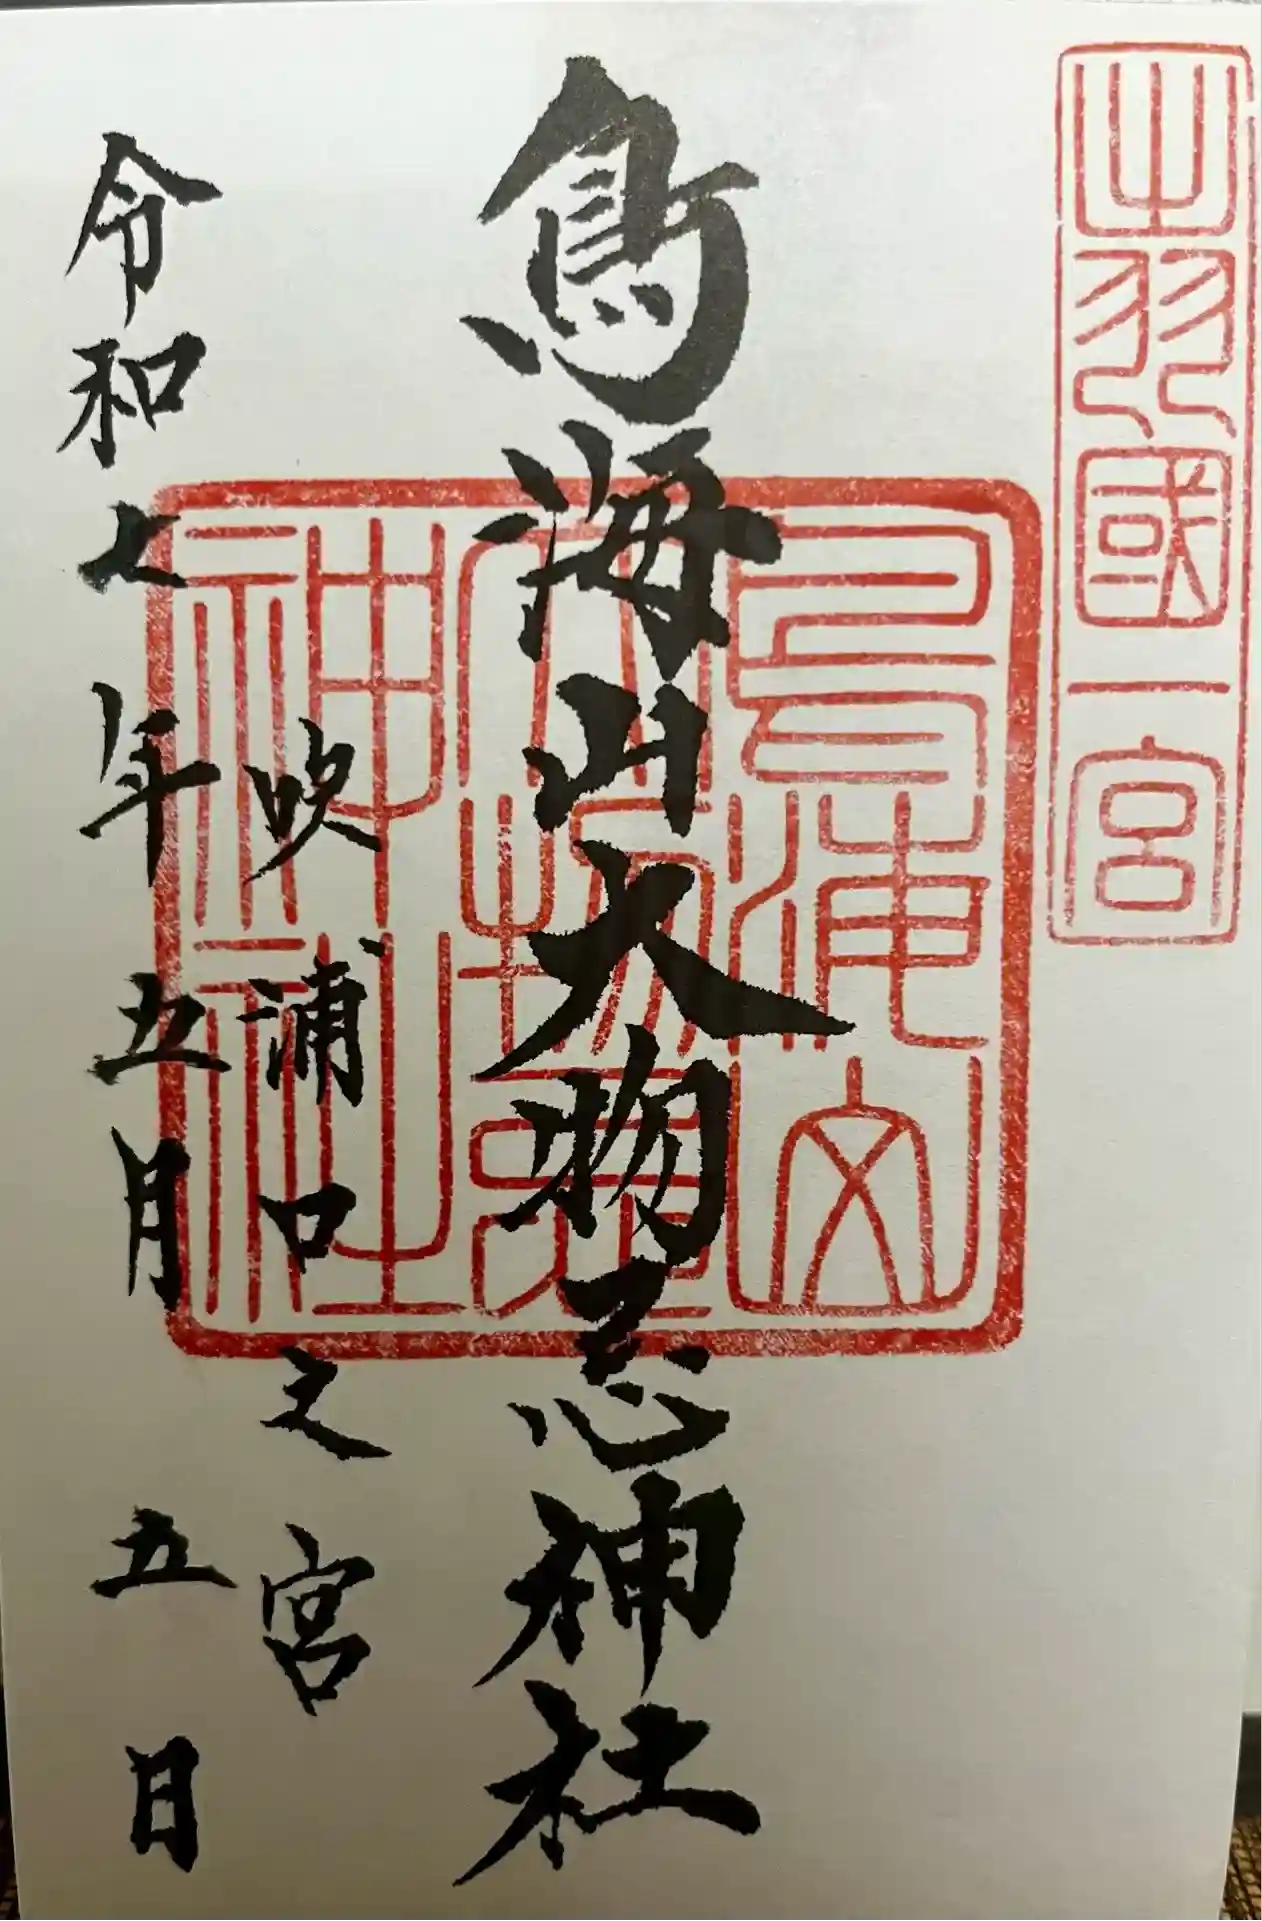 出羽國一宮
鳥海山大物忌神社
大物忌
神社
吹浦口之宮
令和七年五月五日